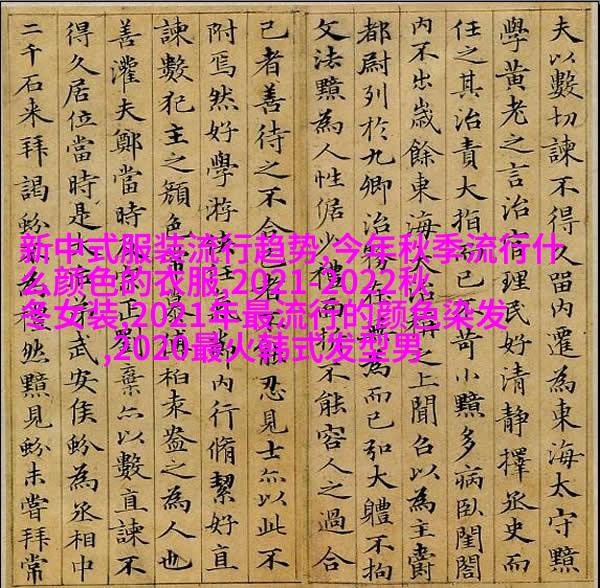 新中式服装流行趋势,今年秋季流行什
么颜色的衣服,2021-2022秋
冬女装,2021年最流行的颜色染发
,2020最火韩式发型男
夫以數切諫不得久留內遷為東海太守黯
學黃老之言治官理民好清靜擇丞史而
任之其治責大指而已不苛小黯多病臥閨閤
內不出歲餘東海大之上聞召以為主爵
都尉列於九卿治務在為而已弘大體不拘
文法黯為人性倨少禮面折不能容人之過合
己者善待之不合己者不能忍見士亦以此不
附焉然好學游俠內行脩絜好直
諫數犯主之顏色常柏袁盎之為人也
善灌夫鄭當時正劉棄亦以數直諫不
得久居位當時是弟武安侯蚡為丞相中
二千石來拜謁蚡禮然黯見蚡未嘗拜常